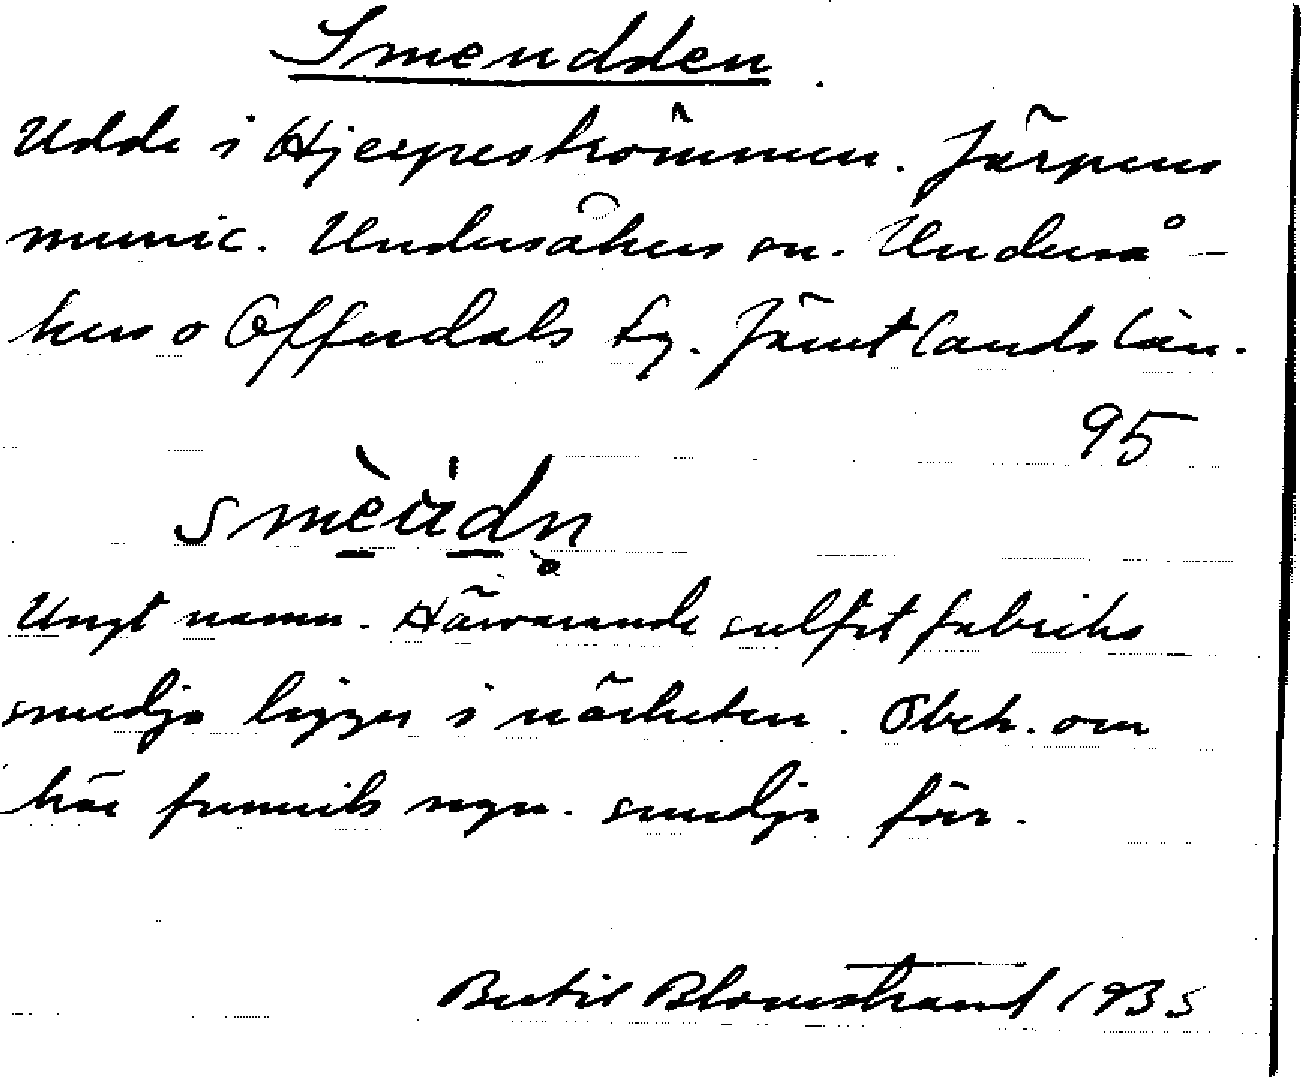 Smeudden.
Udde i Hjerpeströmmen. Järpens
munic. Undersåkers sn. Underså-
kers o Offerdals tg. Jämtlands län.
95
smèüdn̥
Ungt namn. Härvarande sulfitfabriks
smedja ligger i närheten. Obek. om
här funnits ngn. smedja förr.
Bertil Blomstrand 1935